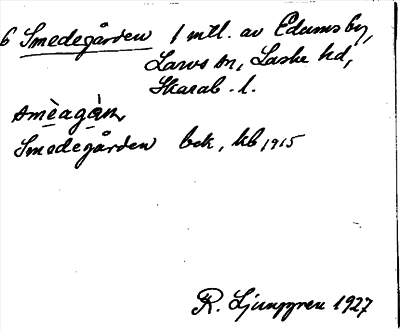 6 Smedegården 1 mtl. av Edums by,
Larvs sn, Laske hd,
Skarab. l.
smèagàɳ
Smedegården bek, kb 1915
R. Ljunggren 1927